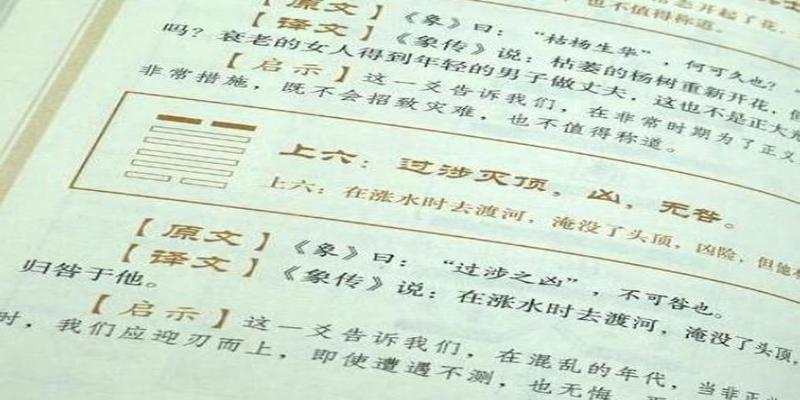 也不值得称道。
【原文】《象》曰：“枯杨生华”，何可久也？
【译文】《象传》说：枯萎的杨树重新开花，
吗？衰老的女人得到年轻的男子做丈夫，这也不是正大光
【启示】这一爻告诉我们，在非常时期为了正义
非常措施，既不会招致灾难，也不值得称道。
上六：过涉灭顶，凶，无咎。
上六：在涨水时去渡河，淹没了头顶，凶险，但他
【原文】《象》曰：“过涉之凶”，不可咎也。
【译文】《象传》说：在涨水时去渡河，淹没了头顶，
归咎于他。
【启示】这一爻告诉我们，在混乱的年代，当非正
时，我们应迎刃而上，即使遭遇不测，也无悔。